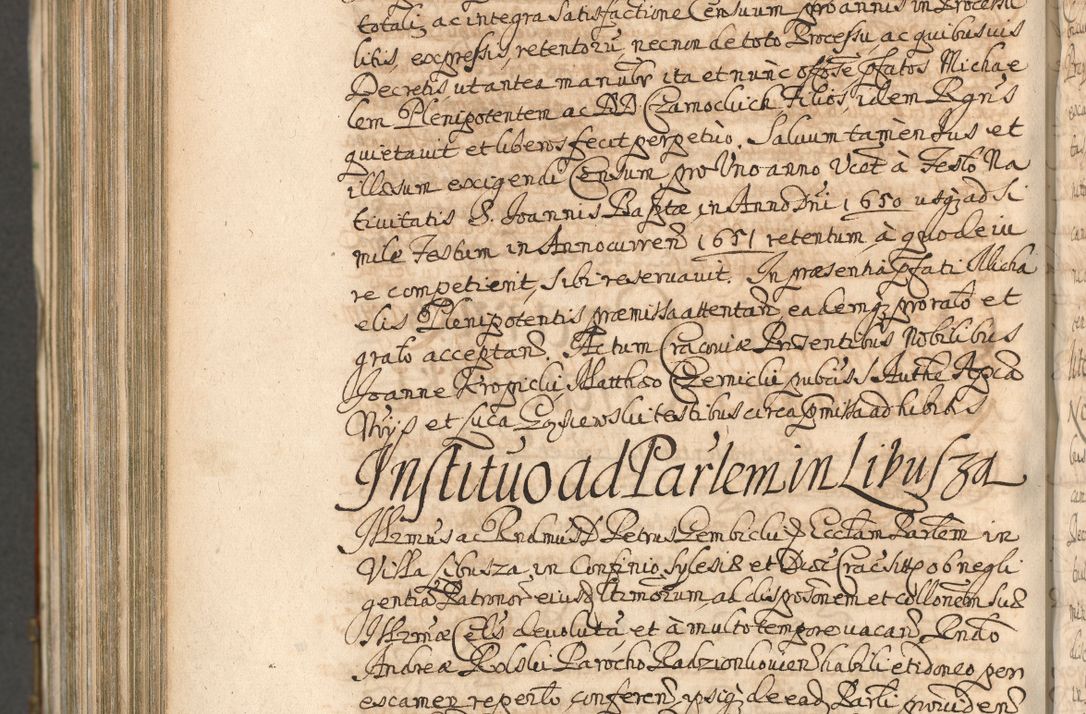 totali, ac integra satisfactione Censuum pro annis in Processu
litis, expressis, retentorũ necnon de toto Processu, ac quibusvis
Decretis ut antea manubr ita et nunc offosse pfatos Michae
lem Plenipotentem ac DD Czarnocluick Filios, idem Rgns
quietavit et liberos fecit perpetuo. Salvum tamen Jus et
illæsum exigendi Censum pro Uno anno Vcet à Festo Na
tivitatis S. Joannis Baptæ in Anno Dni 1650 usq; ad Si
mile Festum in Anno curren 1651 retentum, à quo de iu
re competierit, sibi reservavit. In præsentia pfati Micha
elis Plenipotentis præmissa attentan eademq; pro rato et
grato acceptan. Actum Cracoviæ Præsentibus Nobilibus
Joanne Kropiclii, Matthæo Czerniclii pubcis Authe Apca
Noys et Luca Gosiewslii testibus circa pmissa ad hibitis
Institutio ad Partem in Libusza
Illrmus ac Rndmus D Petrus Gembiclii P Ecclam Partem in
Villa Libusza in Confinio Sylesiæ et Diœc Crac sitt ob negli
gentiã Patronor eiusd Ultimorum, ad dispositonem et collonem Suæ
Illrmæ Celsis devolutã, et à multo tempore vacan, Rndo
Andreæ Rolslii Parocho Radzionkovien habili et idoneo per
escamen reperto conferen, ipsiq; de ead Parti providen